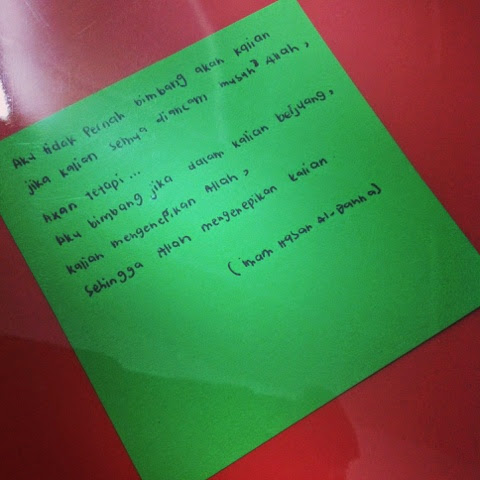 Aku tidak pernah bimbang akan kalian
jika kalian semua diancam musuh² Allah,
Akan tetapi...
Aku bimbang jika dalam kalian berjuang,
kalian mengenepikan Allah,
sehingga Allah mengenepikan kalian
(Imam Hasan Al-Banna)